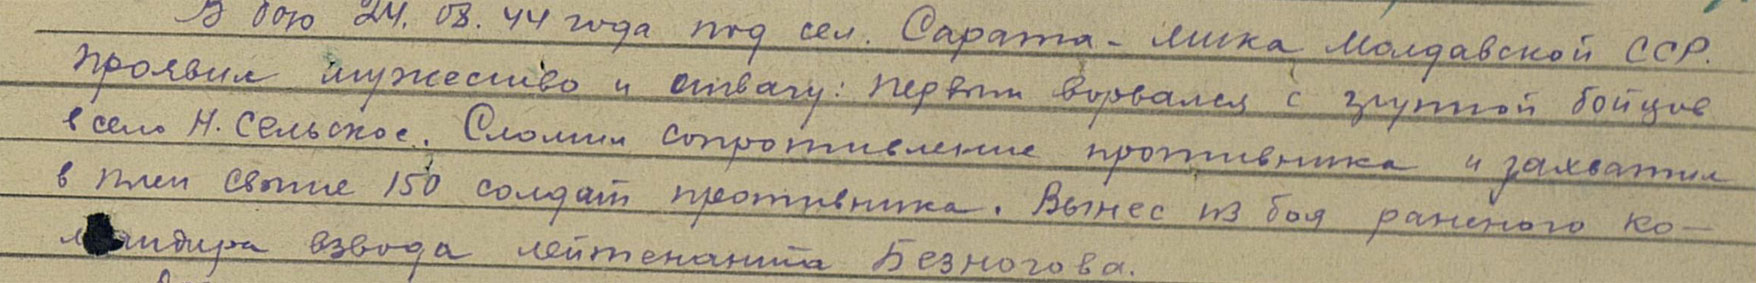 В бою 24.08.44 года под сел. Сарата-Мика Молдавской ССР.
проявил мужество и отвагу: первым ворвался с группой бойцов
в село Н. Сельское. Сломил сопротивление противника и захватил
в плен свыше 150 солдат противника. Вынес из боя раненого ко-
мандира взвода лейтенанта Безногова.